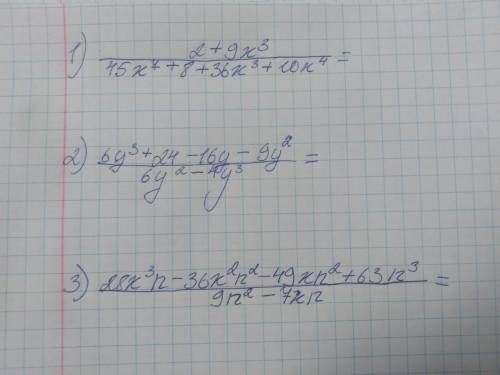 1) (2 + 9x³)/(45x⁷ + 8 + 36x³ + 10x⁴) =
2) (6y³ + 24 - 16y - 9y²)/(6y² - 4y³) =
3) (28x³n - 36x²n² - 49xn² + 63n³)/(9n² - 7xn) =